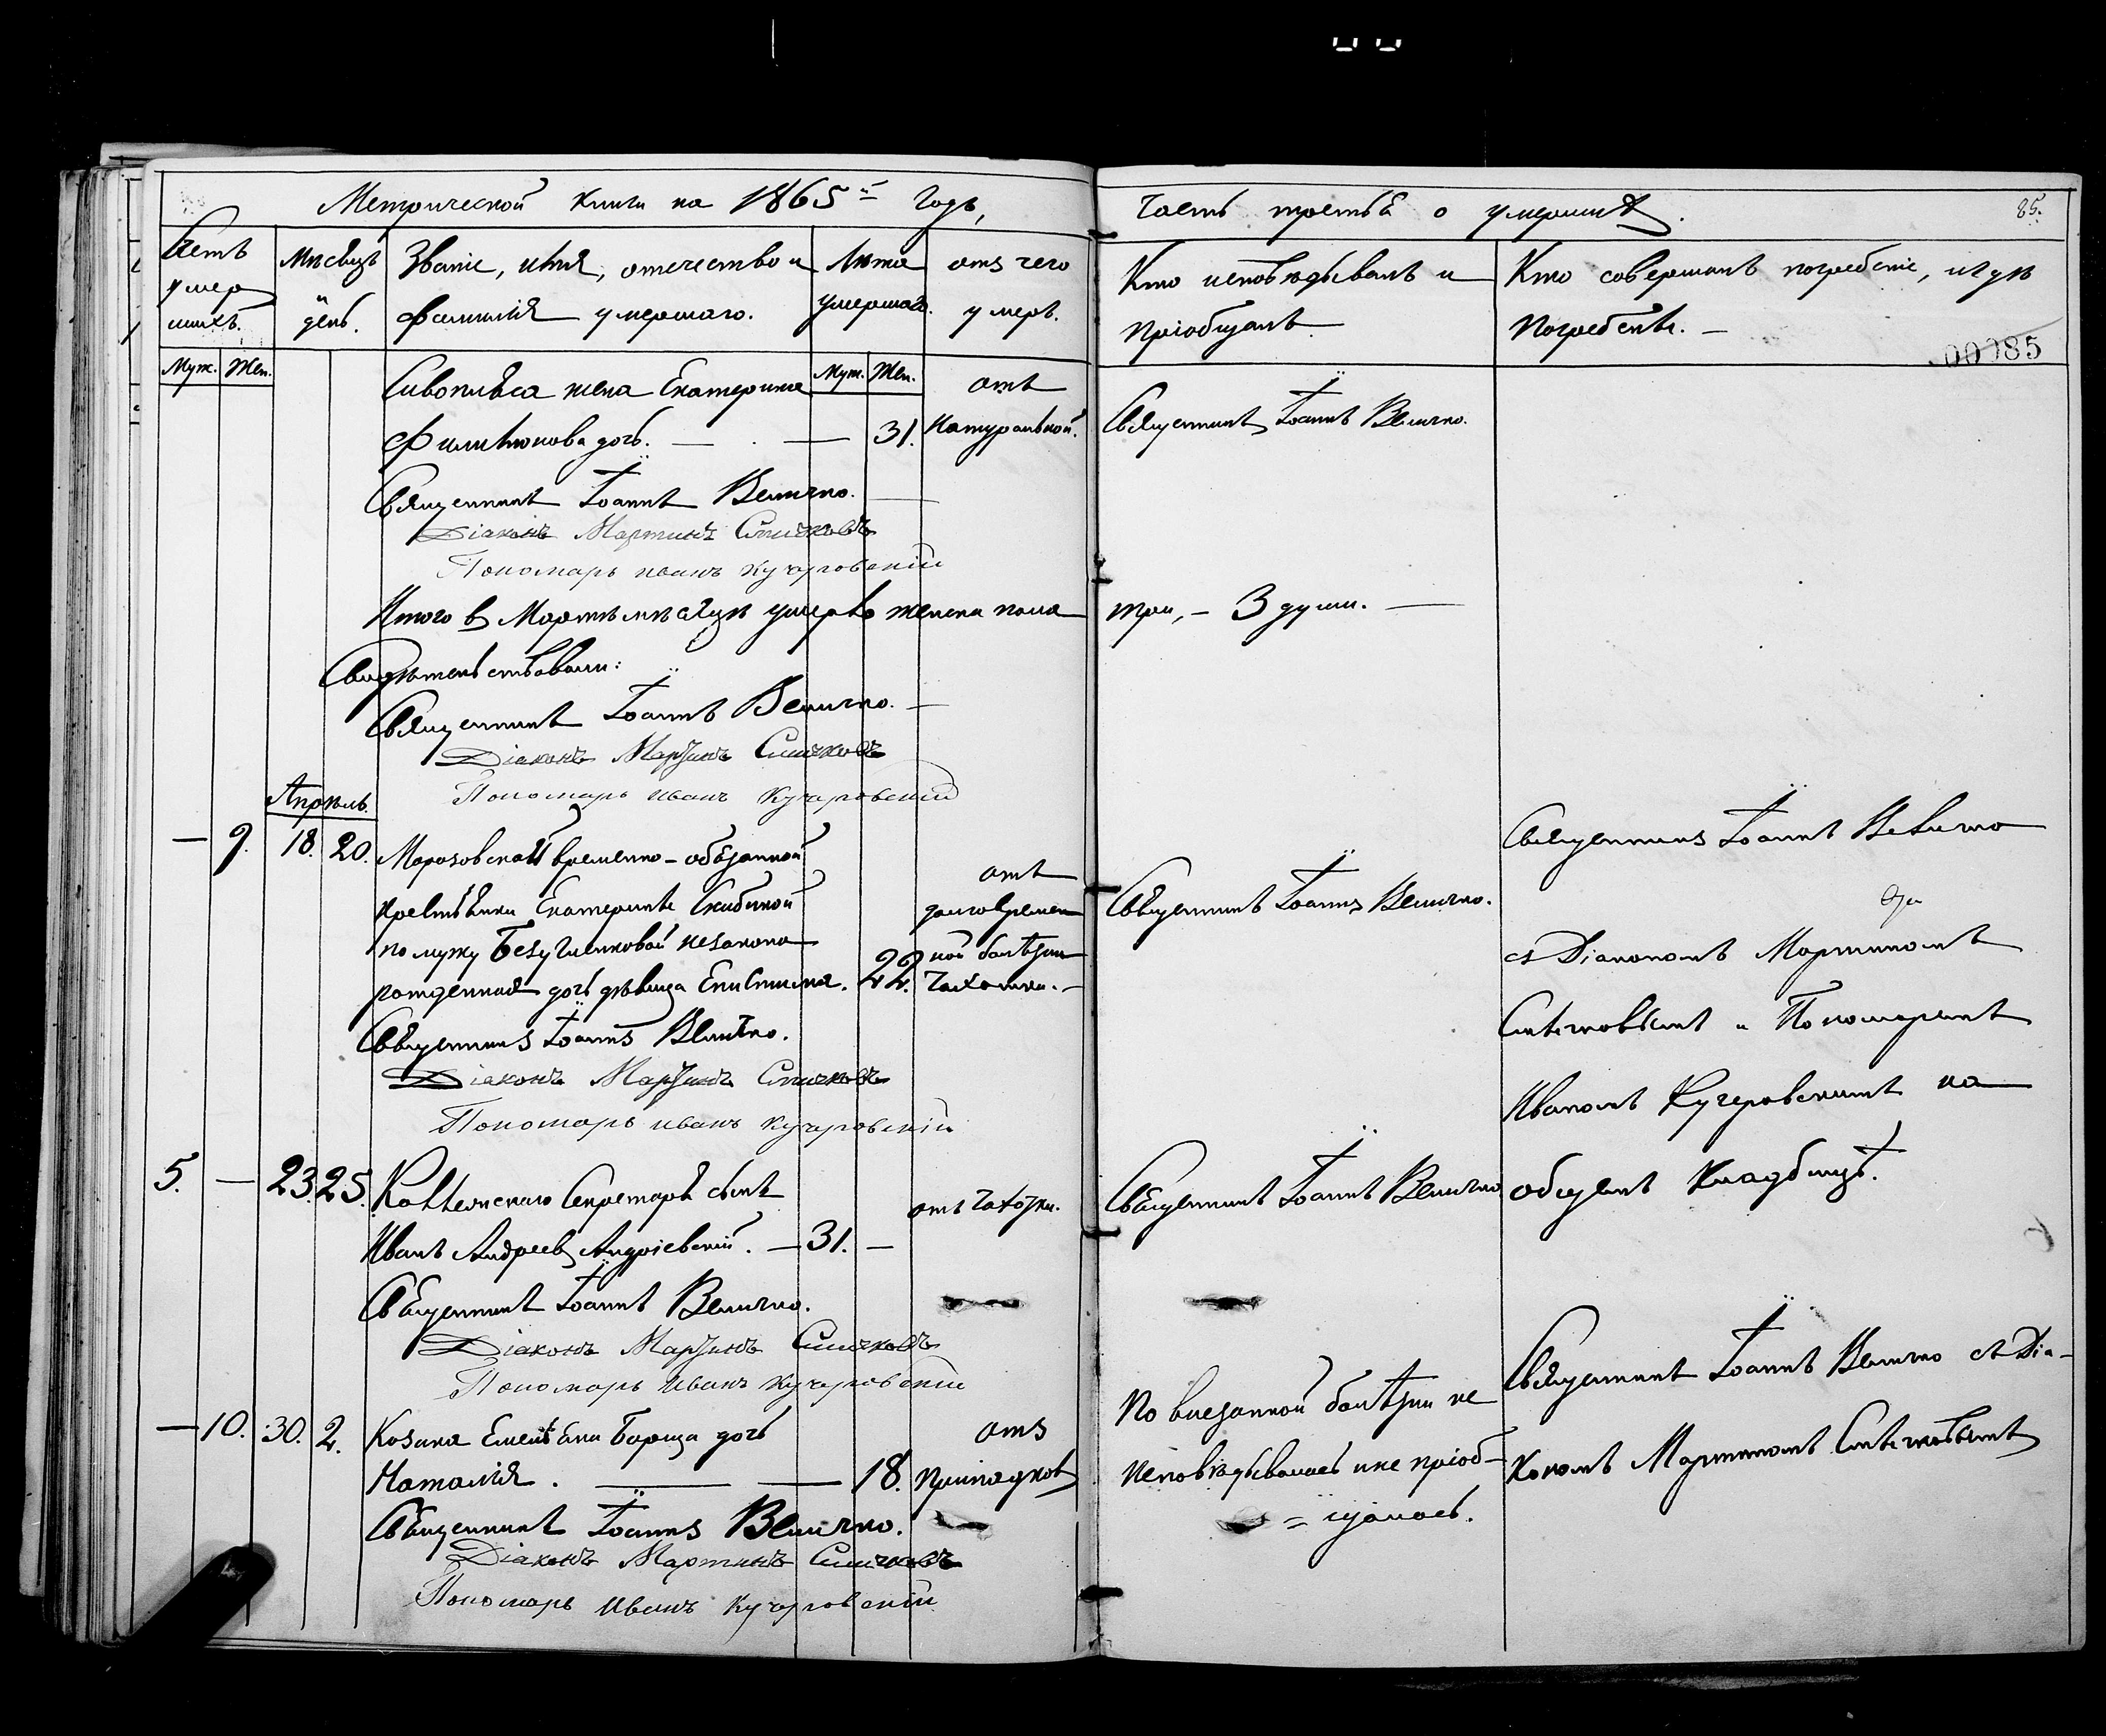 Метрической книги на 1865й годъ,
Счетъ умершихъ.
Мѣсяцъ и день.
Званіе, имя, отечество и
фамилія умершаго.
Лѣта
умершаго.
отъ чего
умеръ.
Муж. Жен.
Муж. Жен.
жена Екатерина
Филимонова дочь. — 31.
отъ
натуральной.
Священникъ Іоаннъ Величко.
Діаконъ Мартинъ
Пономарь Иванъ Кучеровскій
Итого въ Мартѣ мѣсяцѣ умерло женска пола
Свидѣтельствовали:
Священникъ Іоаннъ Величко.
Діаконъ Мартинъ
Пономарь Иванъ Кучеровскій
Апрѣль.
— 9. 18. 20. Морозовской временно-обязанной
крестьянки Екатерины Скибиной
по мужу незаконно
рожденная дочь дѣвица Епистимія. 22.
отъ
долговремен
ной болѣзни
чахотки.
Священникъ Іоаннъ Величко.
Діаконъ Мартинъ
Пономарь Иванъ Кучеровскій
5. — 23. 25. Коллежскаго Секретаря сынъ
Иванъ Андреевъ Андріевскій. — 31. —
отъ чахотки.
Священникъ Іоаннъ Величко.
Діаконъ Мартинъ
Пономарь Иванъ Кучеровскій
— 10. 30. 2. Козака Емельяна Борща дочь
Наталія. — 18.
отъ
припадковъ
Священникъ Іоаннъ Величко.
Діаконъ Мартинъ
Пономарь Иванъ Кучеровскій
Часть третья о умершихъ.
85.
Кто исповѣдывалъ и
пріобщалъ
Кто совершалъ погребеніе, и гдѣ
погребены. —
00085
Священникъ Іоаннъ Величко.
три, — 3 души. —
Священникъ Іоаннъ Величко.
Священникъ Іоаннъ Величко
По внезапной болѣзни не
исповѣдывалась и не пріоб-
= щалась.
Священникъ Іоаннъ Величко
съ Діакономъ Мартиномъ
и Пономаремъ
Иваномъ Кучеровскимъ на
общемъ кладбищѣ.
Священникъ Іоаннъ Величко съ Діа-
кономъ Мартиномъ